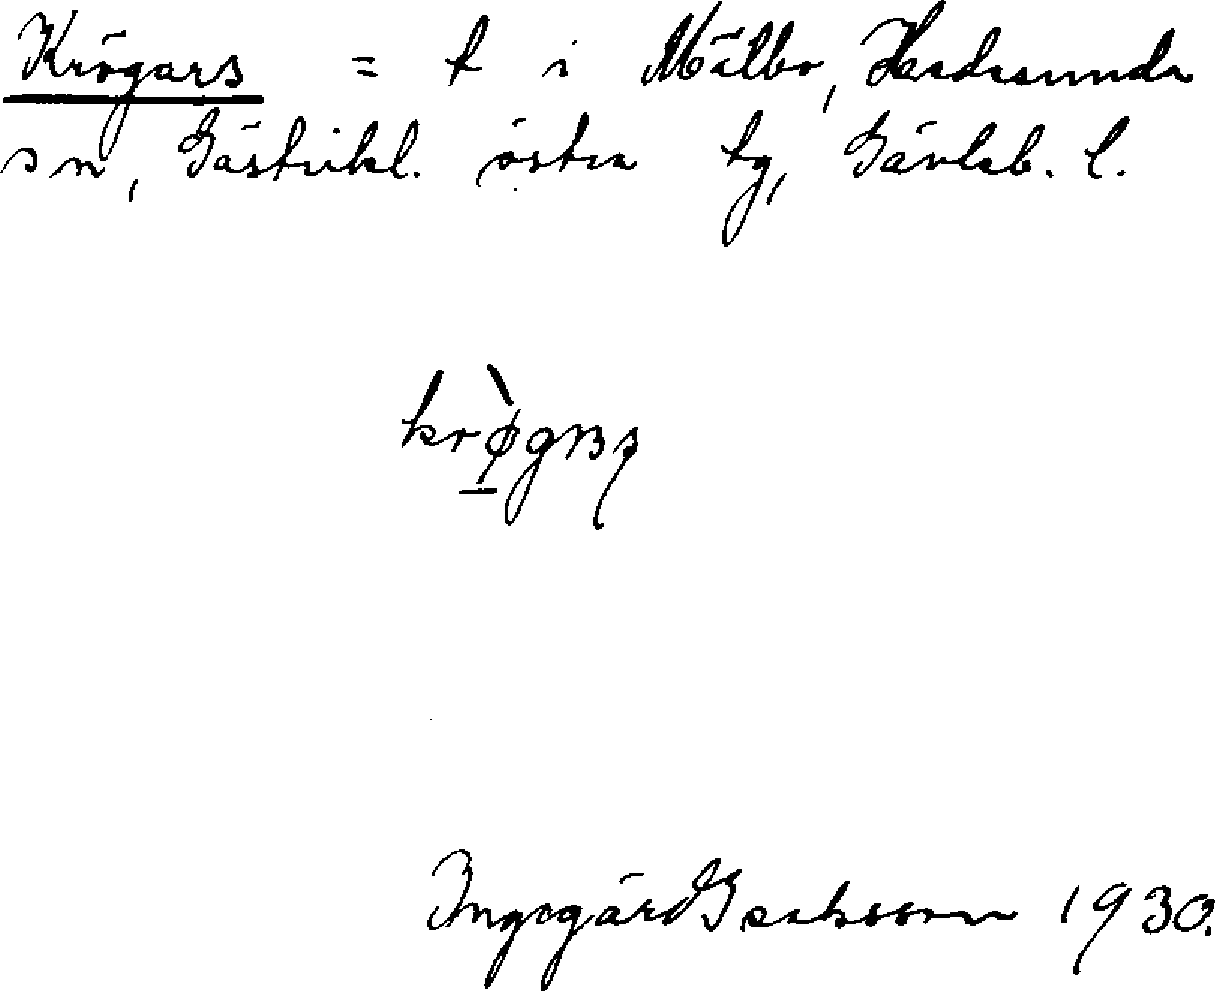 Krögars = t i Mälbo, Hedesunda
sn, Gästrikl. östra tg, Gävleb. l.
Ingegärd Isaksson 1930.